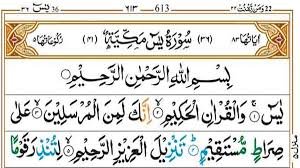 22 ومن يقنت ٢٢ 613 ٦١٣ يٰسٓ 36 ٣٦
اٰيَاتُهَا ٨٣ (٣٦) سُوْرَةُ يٰسٓ مَكِّيَّةٌ (٤١) رُكُوْعَاتُهَا ٥
بِسْمِ اللّٰهِ الرَّحْمٰنِ الرَّحِيْمِ
يٰسٓ ۝ وَالْقُرْاٰنِ الْحَكِيْمِ ۝ اِنَّكَ لَمِنَ الْمُرْسَلِيْنَ ۝ عَلٰى
صِرَاطٍ مُّسْتَقِيْمٍ ۝ تَنْزِيْلَ الْعَزِيْزِ الرَّحِيْمِ ۝ لِتُنْذِرَ قَوْمًا